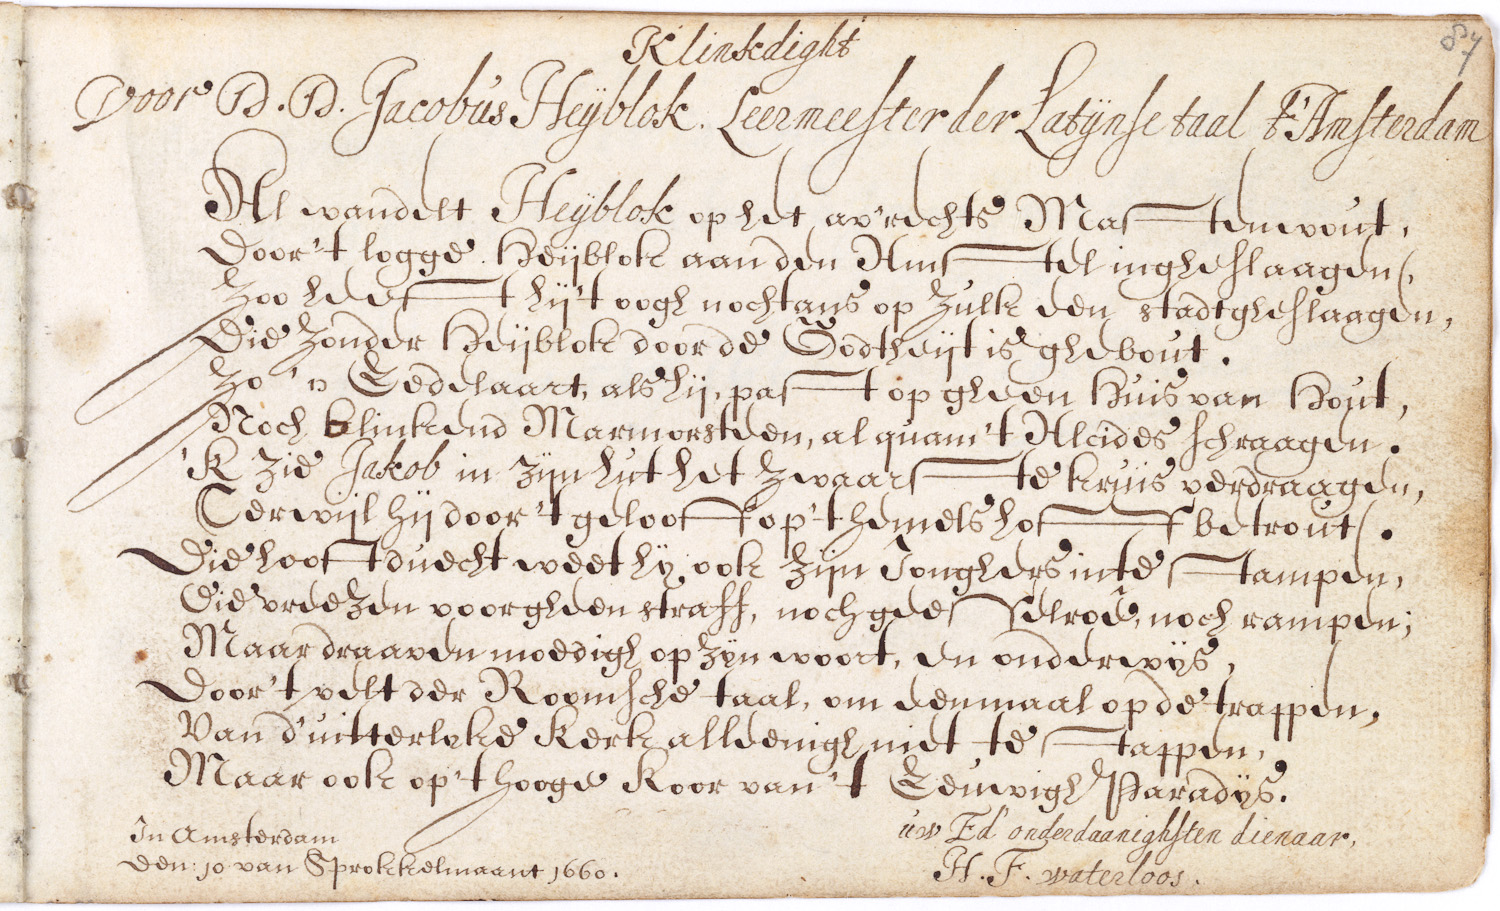 87
Klinkdight
Voor D. D. Jacobus Heyblok. Leermeester der Latynse taal t'Amsterdam
Al wandelt Heyblok op het av'rechts Mastenwout,
Door't logge Heyblok aan den Amstel ingheslaagen,
Zoo heest hy't oogh nochtans op zulk een stadt gheslaagen,
Die zonder Heyblok door de Godtheyt is ghebout.
Zo 'n Eedelaart, als hy, past op gheen Huis van Hout,
Noch klinkend Marmorsteen, al quam't Alcides schraagen.
'K zie Jakob in zyn hut het zwaarste kruis verdraagen,
Terwyl hy door 't geloof op't hemels hof betrout.
Die hooft duecht weet hy ook zyn Jonghers in te stampen,
Die vreezen voor gheen straff, noch geesselroê, noch rampen;
Maar draaven moedigh op zyn woort, en onderwys,
Door't velt der Roomsche taal, om eenmaal op de trappen,
Van d'uitterlyke Kerk alleenigh niet te stappen,
Maar ook op't hooge Koor van't Eeuwigh Paradys.
uw Ed' onderdaanighsten dienaar,
H. F. waterloos.
In Amsterdam
den: 10 van Sprokkelmaant 1660.